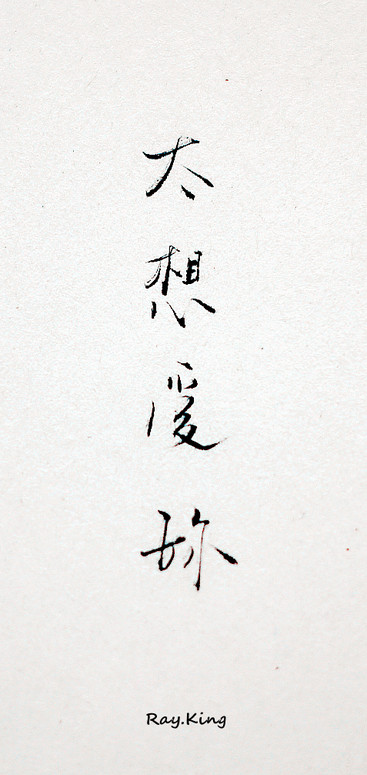 太想愛妳
Ray.King